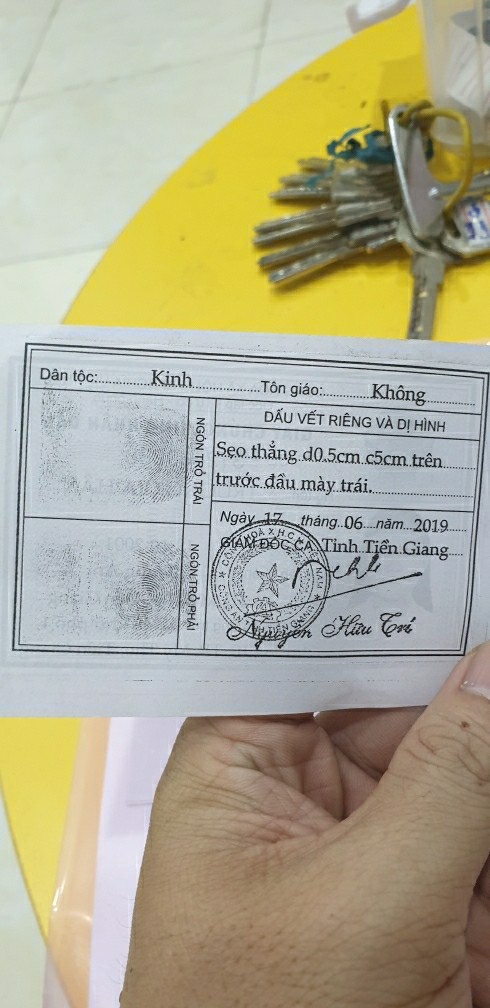 Dân tộc:.............Kinh.................Tôn giáo:...........Không..........
DẤU VẾT RIÊNG VÀ DỊ HÌNH
Sẹo thẳng d0.5cm c5cm trên
trước đầu mày trái.
NGÓN TRỎ TRÁI
Ngày 17 tháng 06 năm 2019
GIÁM ĐỐC CA Tỉnh Tiền Giang
NGÓN TRỎ PHẢI
Nguyễn Hữu Trí